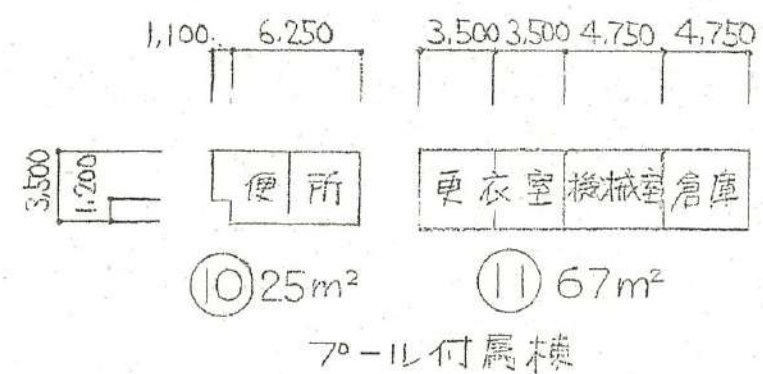 1,100 6.250 3,500 3,500 4.750 4,750
3,500 1,200 便所 更衣室 機械室 倉庫
⑩ 25m² ⑪ 67m²
プール付属棟